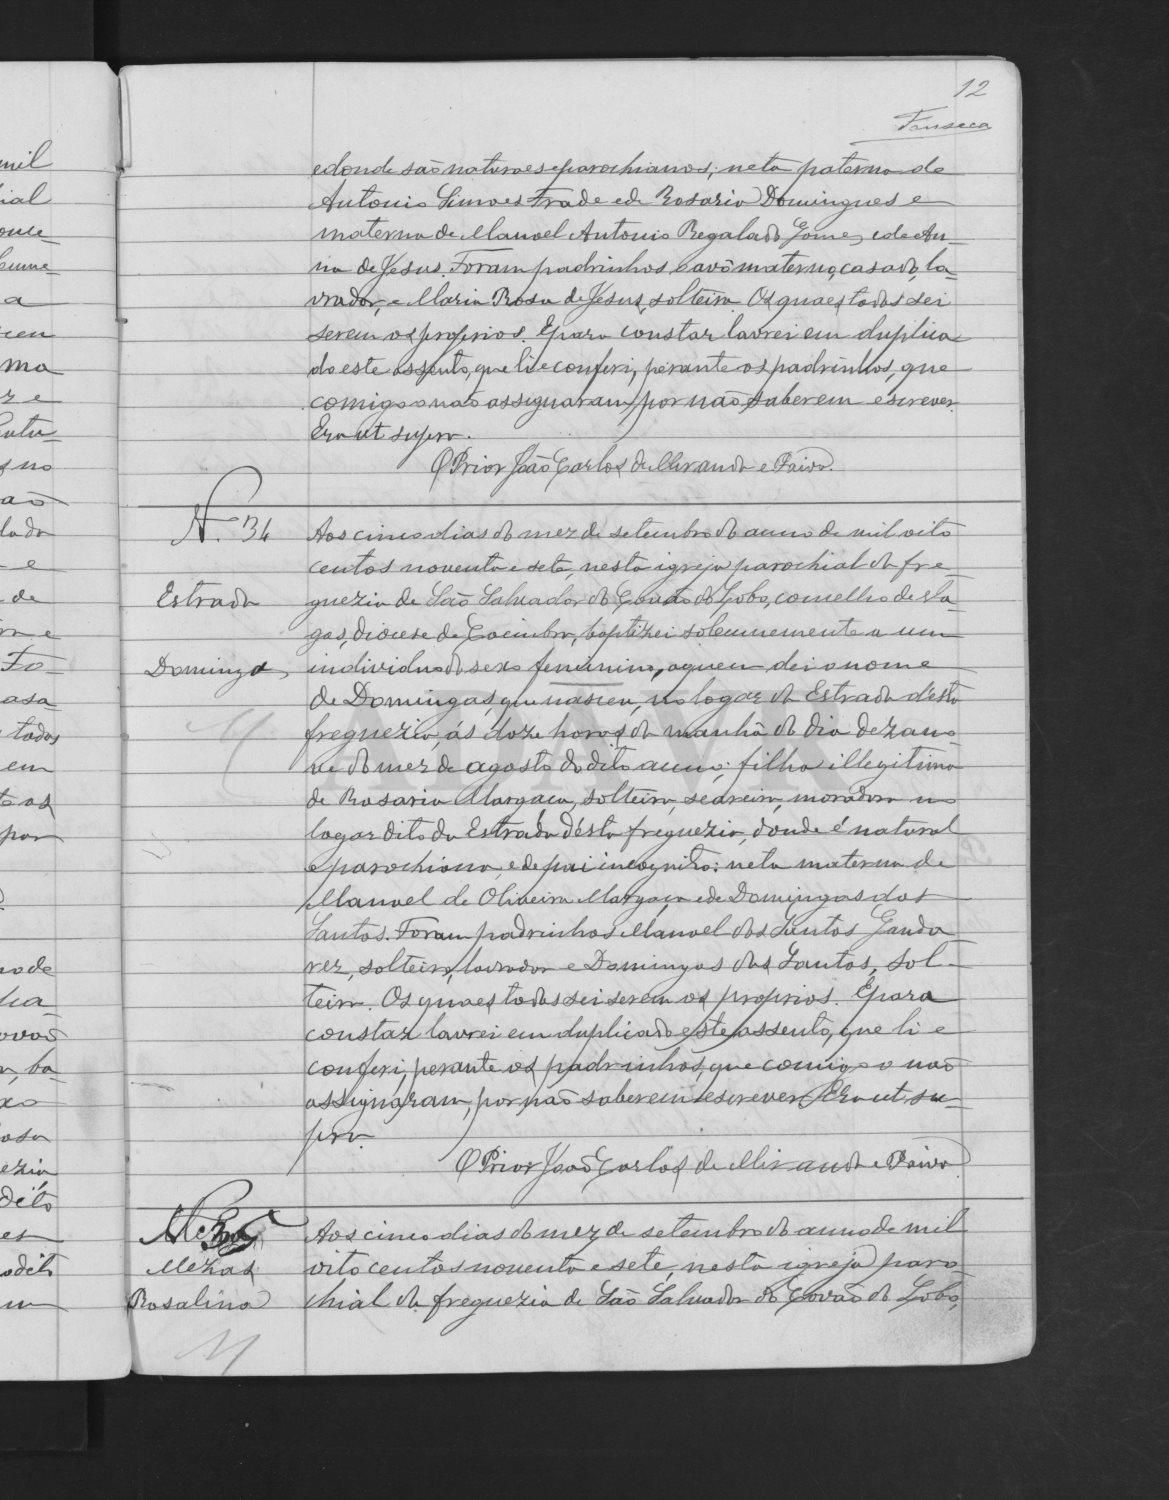 12
Fonseca
e donde são naturaes e parochianos; neta paterna de
Antonio Simoes Frade e de Rosaria Domingues e
materna de Manoel Antonio Regalado Gomes e de An-
na de Jesus. Foram padrinhos, o avô materno, casado, la-
vrador, e Maria Rosa de Jesus, solteira. Os quaes todos sei
serem os proprios. E para constar lavrei em duplica
do este assento, que li e conferi, perante os padrinhos, que
comigo o não assignaram, por não saberem escrever.
Era ut supra.
O Prior João Carlos de Miranda e Paiva.
N.º 34
Estrada
Domingas
Aos cinco dias do mez de setembro do anno de mil oito
centos noventa e sete, nesta igreja parochial da fre
guezia de São Salvador do Covão do Lobo, concelho de Va-
gos, diocese de Coimbra, baptizei solemnemente a um
individuo do sexo feminino, a quem dei o nome
de Domingas, que nasceu, no logar da Estrada d'esta
freguezia, ás doze horas da manhã do dia dezano-
ve do mez de agosto do dito anno; filha illegitima
de Rosaria Margaça, solteira, seareira, moradora no
logar dito da Estrada d'ésta freguezia, donde é natural
e parochiana, e de pai incognito: neta materna de
Manoel de Oliveira Margaça e de Domingas dos
Santos. Foram padrinhos Manoel dos Santos Ganda
rez, solteiro, lavrador e Domingas dos Santos, sol-
teira. Os quaes todos sei serem os proprios. E para
constar lavrei em duplicado este assento, que li e
conferi, perante os padrinhos, que comigo o não
assignaram, por não saberem escrever. Era ut su-
pra.
O Prior João Carlos de Miranda e Paiva
Mezas
Rosalina
Aos cinco dias do mez de setembro do anno de mil
oito centos noventa e sete, nesta igreja paro-
chial da freguezia de São Salvador do Covão do Lobo,